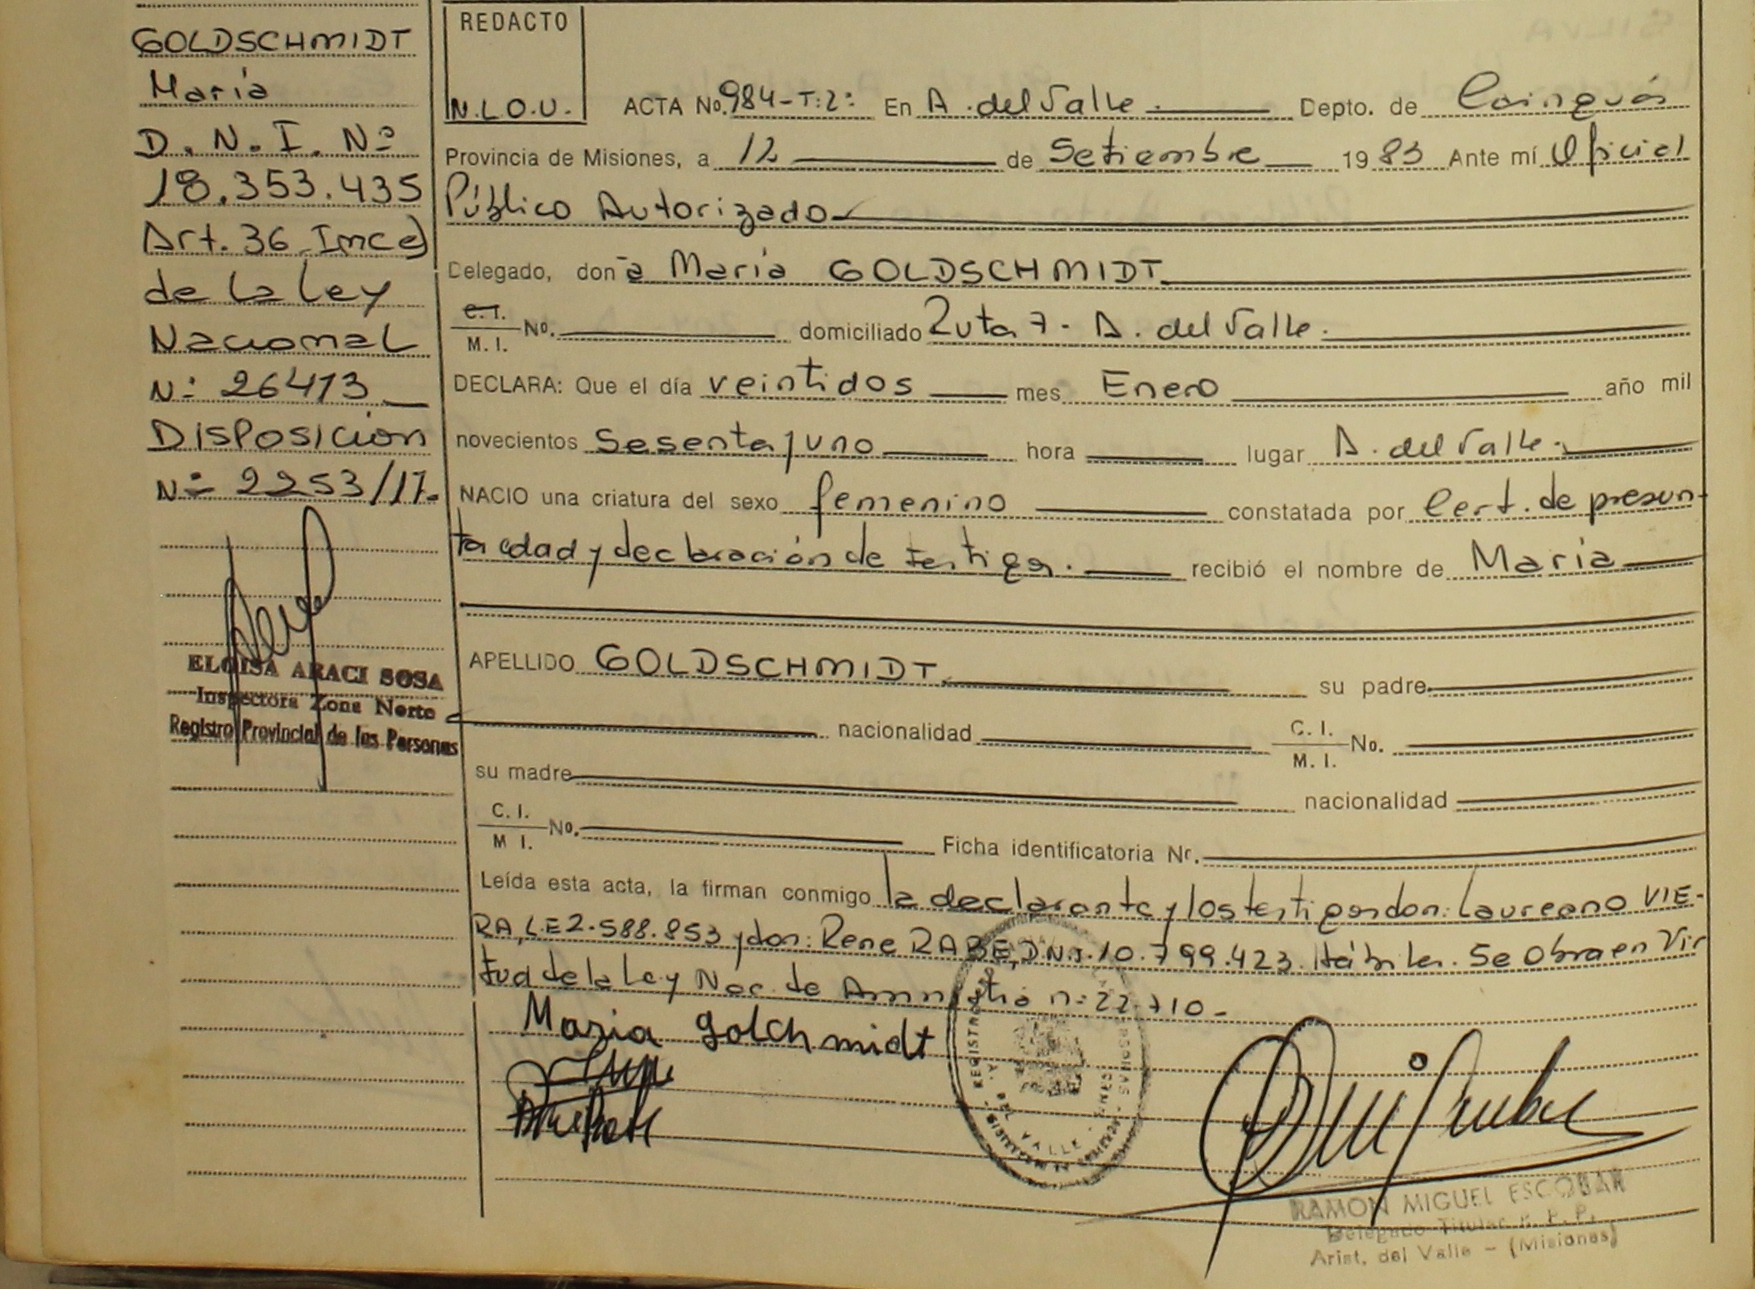 GOLDSCHMIDT
Maria
D. N. I. Nº
18.353.435
Art. 36 Inc e)
de la Ley
Nacional
Nº 26413
Disposición
Nº 2253/17.
ELOISA ARACI SOSA
Inspectora Zona Norte
Registro Provincial de las Personas
REDACTO
N.L.O.U.
ACTA No. 984-T:2º En A. del Valle Depto. de Cainguás
Provincia de Misiones, a 12 de Setiembre 1983 Ante mí Oficial
Público Autorizado
Delegado, don ̃a Maria GOLDSCHMIDT
C.I. / M. I. No. domiciliado Ruta 7 - A. del Valle.
DECLARA: Que el día veintidos mes Enero año mil
novecientos Sesenta y uno hora lugar A. del Valle.
NACIO una criatura del sexo femenino constatada por Cert. de presun-
ta edad y declaración de testigos. recibió el nombre de Maria
APELLIDO GOLDSCHMIDT su padre
nacionalidad C. I. / M. I. No.
su madre nacionalidad
C. I. / M I. No. Ficha identificatoria Nr.
Leída esta acta, la firman conmigo la declarante y los testigos don: Laureano VIE-
RA, L.E 2.588.853 y don: Rene RABE, D.N.I. 10.799.423. Hábiles. Se Obra en Vir
tud de la Ley Nac. de Amnistia nº 22.710-
Maria golchmidt
REGISTRO
DEL VALLE
RAMON MIGUEL ESCOBAR
Delegado Titular R. P. P.
Arist. del Valle - (Misiones)